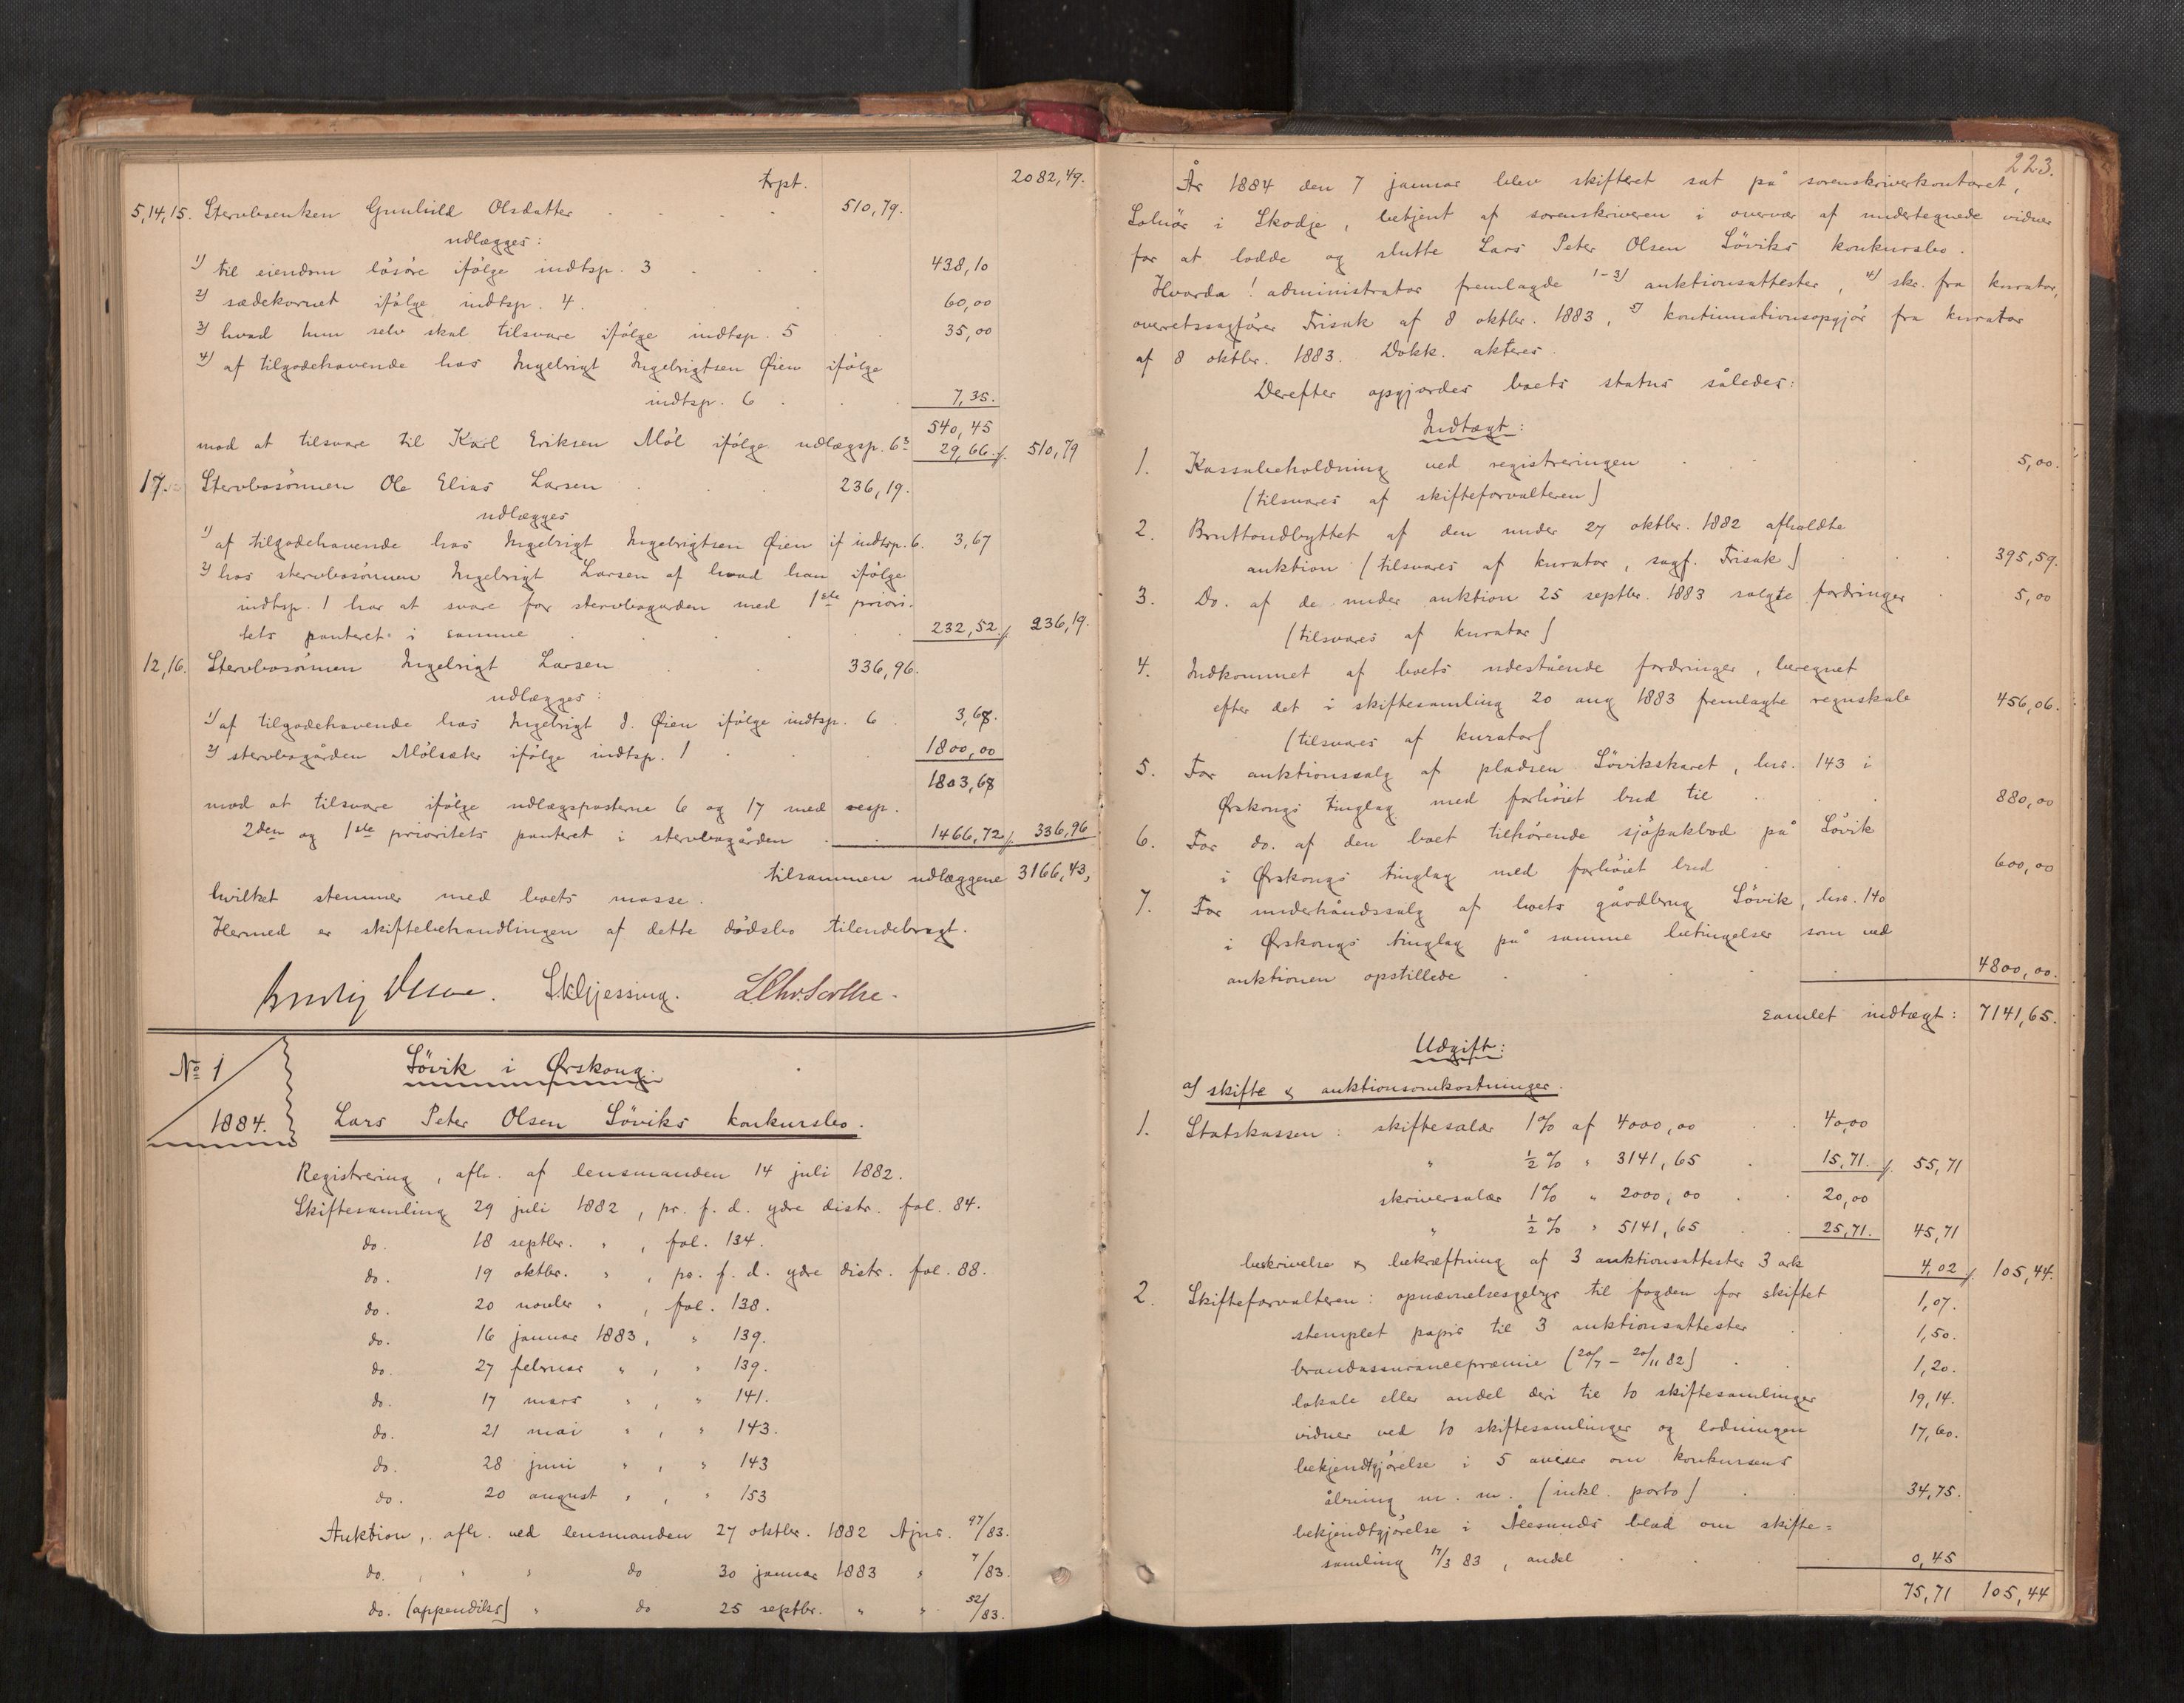 trpt. 2082,49.
5,14,15. Stervboenken Gunhild Olsdatter 510,79.
udlægges:
1) til eiendom lösöre ifölge indtsp. 3 438,10
2) sædekornet ifölge indtsp. 4. 60,00
3) hvad hun selv skal tilsvare ifölge indtsp. 5 35,00
4) af tilgodehavende hos Ingebrigt Ingebrigtsen Øien ifölge
indtsp. 6 7,35.
540,45
mod at tilsvare til Karl Eriksen Möl ifölge udlægsp. 6 29,66 ./. 510,79
17. Stervbosönnen Ole Elias Larsen 236,19.
udlægges
1) af tilgodehavende hos Ingebrigt Ingebrigtsen Øien if indtsp. 6. 3,67
2) hos stervbosönnen Ingebrigt Larsen af hvad han ifölge
indtsp. 1 har at svare for stervbogården med 1ste priori-
tets panteret i samme 232,52 ./. 236,19.
12,16. Stervbosönnen Ingebrigt Larsen 336,96.
udlægges:
1) af tilgodehavende hos Ingebrigt I. Øien ifölge indtsp. 6 3,68.
2) stervbogården Mölsæter ifölge indtsp. 1 1800,00
1803,68
mod at tilsvare ifölge udlægsposterne 6 og 17 med resp.
2den og 1ste prioritets panteret i stervbogården 1466,72 ./. 336,96
tilsammen udlæggene 3166,43,
hvilket stemmer med boets masse.
Hermed er skiftebehandlingen af dette dödsbo tilendebragt.
No 1
1884.
Sövik i Ørskoug.
Lars Peter Olsen Söviks konkursbo.
Registrering, afh. af lensmanden 14 juli 1882.
Skiftesamling 29 juli 1882, pr. f. d. ydre distr. fol. 84.
do. 18 septbr. " , fol. 134.
do. 19 oktbr. " , pr. f. d. ydre distr. fol. 88.
do. 20 novbr " , fol. 138.
do. 16 januar 1883, " 139.
do. 27 februar " , " 139.
do. 17 mars " , " 141.
do. 21 mai " , " 143.
do. 28 juni " , " 143
do. 20 august " , " 153
Auktion, afh. ved lensmanden 27 oktbr. 1882 Ajnr. 97/83.
do. , " " do 30 januar 1883 " 7/83.
do. (appendiks) " do 25 septbr. " " 52/83.
223.
År 1884 den 7 januar blev skifteret sat på sorenskriverkontoret,
Solnör i Skodje, betjent af sorenskriveren i overvær af undertegnede vidner
for at lodde og slutte Lars Peter Olsen Söviks konkursbo.
Hvorda! administrator fremlagde 1-3) auktionsattester, 4) skr. fra kurator,
overretssagförer Frisak af 8 oktbr. 1883, 5) kontinuationsopgjör fra kurator
af 8 oktbr. 1883. Dokk. akteres.
Derefter opgjordes boets status således:
Indtægt:
1. Kassabeholdning ved registreringen 5,00.
(tilsvares af skifteforvalteren)
2. Bruttoudbyttet af den under 27 oktbr. 1882 afholdte
auktion (tilsvares af kurator, sagf. Frisak) 395,59.
3. Do. af de under auktion 25 septbr. 1883 solgte fordringer 5,00
(tilsvares af kurator)
4. Indkommet af boets udestående fordringer, beregnet
efter det i skiftesamling 20 aug 1883 fremlagte regnskab 456,06.
(tilsvares af kurator)
5. For auktionssalg af pladsen Sövikskaret, lnr. 143 i
Ørskougs tinglag med forhöiet bud til 880,00
6. For do. af den boet tilhörende sjöpakbod på Sövik
i Ørskougs tinglag med forhöiet bud 600,00
7. For underhåndssalg af boets gårdbrug Sövik, lnr. 140
i Ørskougs tinglag på samme betingelser som ved
auktionen opstillede 4800,00.
Samlet indtægt: 7141,65.
Udgift:
a) skifte & auktionsomkostninger.
1. Statskassen: skiftesalær 1% af 4000,00 40,00
" ½% " 3141,65 15,71. ./. 55,71
skriversalær 1% " 2000,00 20,00
" ½% " 5141,65 25,71. 45,71
beskrivelse & bekræftning af 3 auktionsattester 3 ark 4,02 ./. 105,44.
2. Skifteforvalteren: opnævnelsesgebyr til fogden for skiftet 1,07.
stemplet papir til 3 auktionsattester 1,50.
brandassurancepræmie (20/7 – 20/11 82) 1,20.
lokale eller andel deri til 10 skiftesamlinger 19,14.
vidner ved 10 skiftesamlinger og lodningen 17,60.
bekjendtgjörelse i 5 aviser om konkursens
åbning m. m. (inkl. porto) 34,75.
bekjendtgjörelse i Ålesunds blad om skifte=
samling 17/3 83, andel 0,45
75,71 105,44